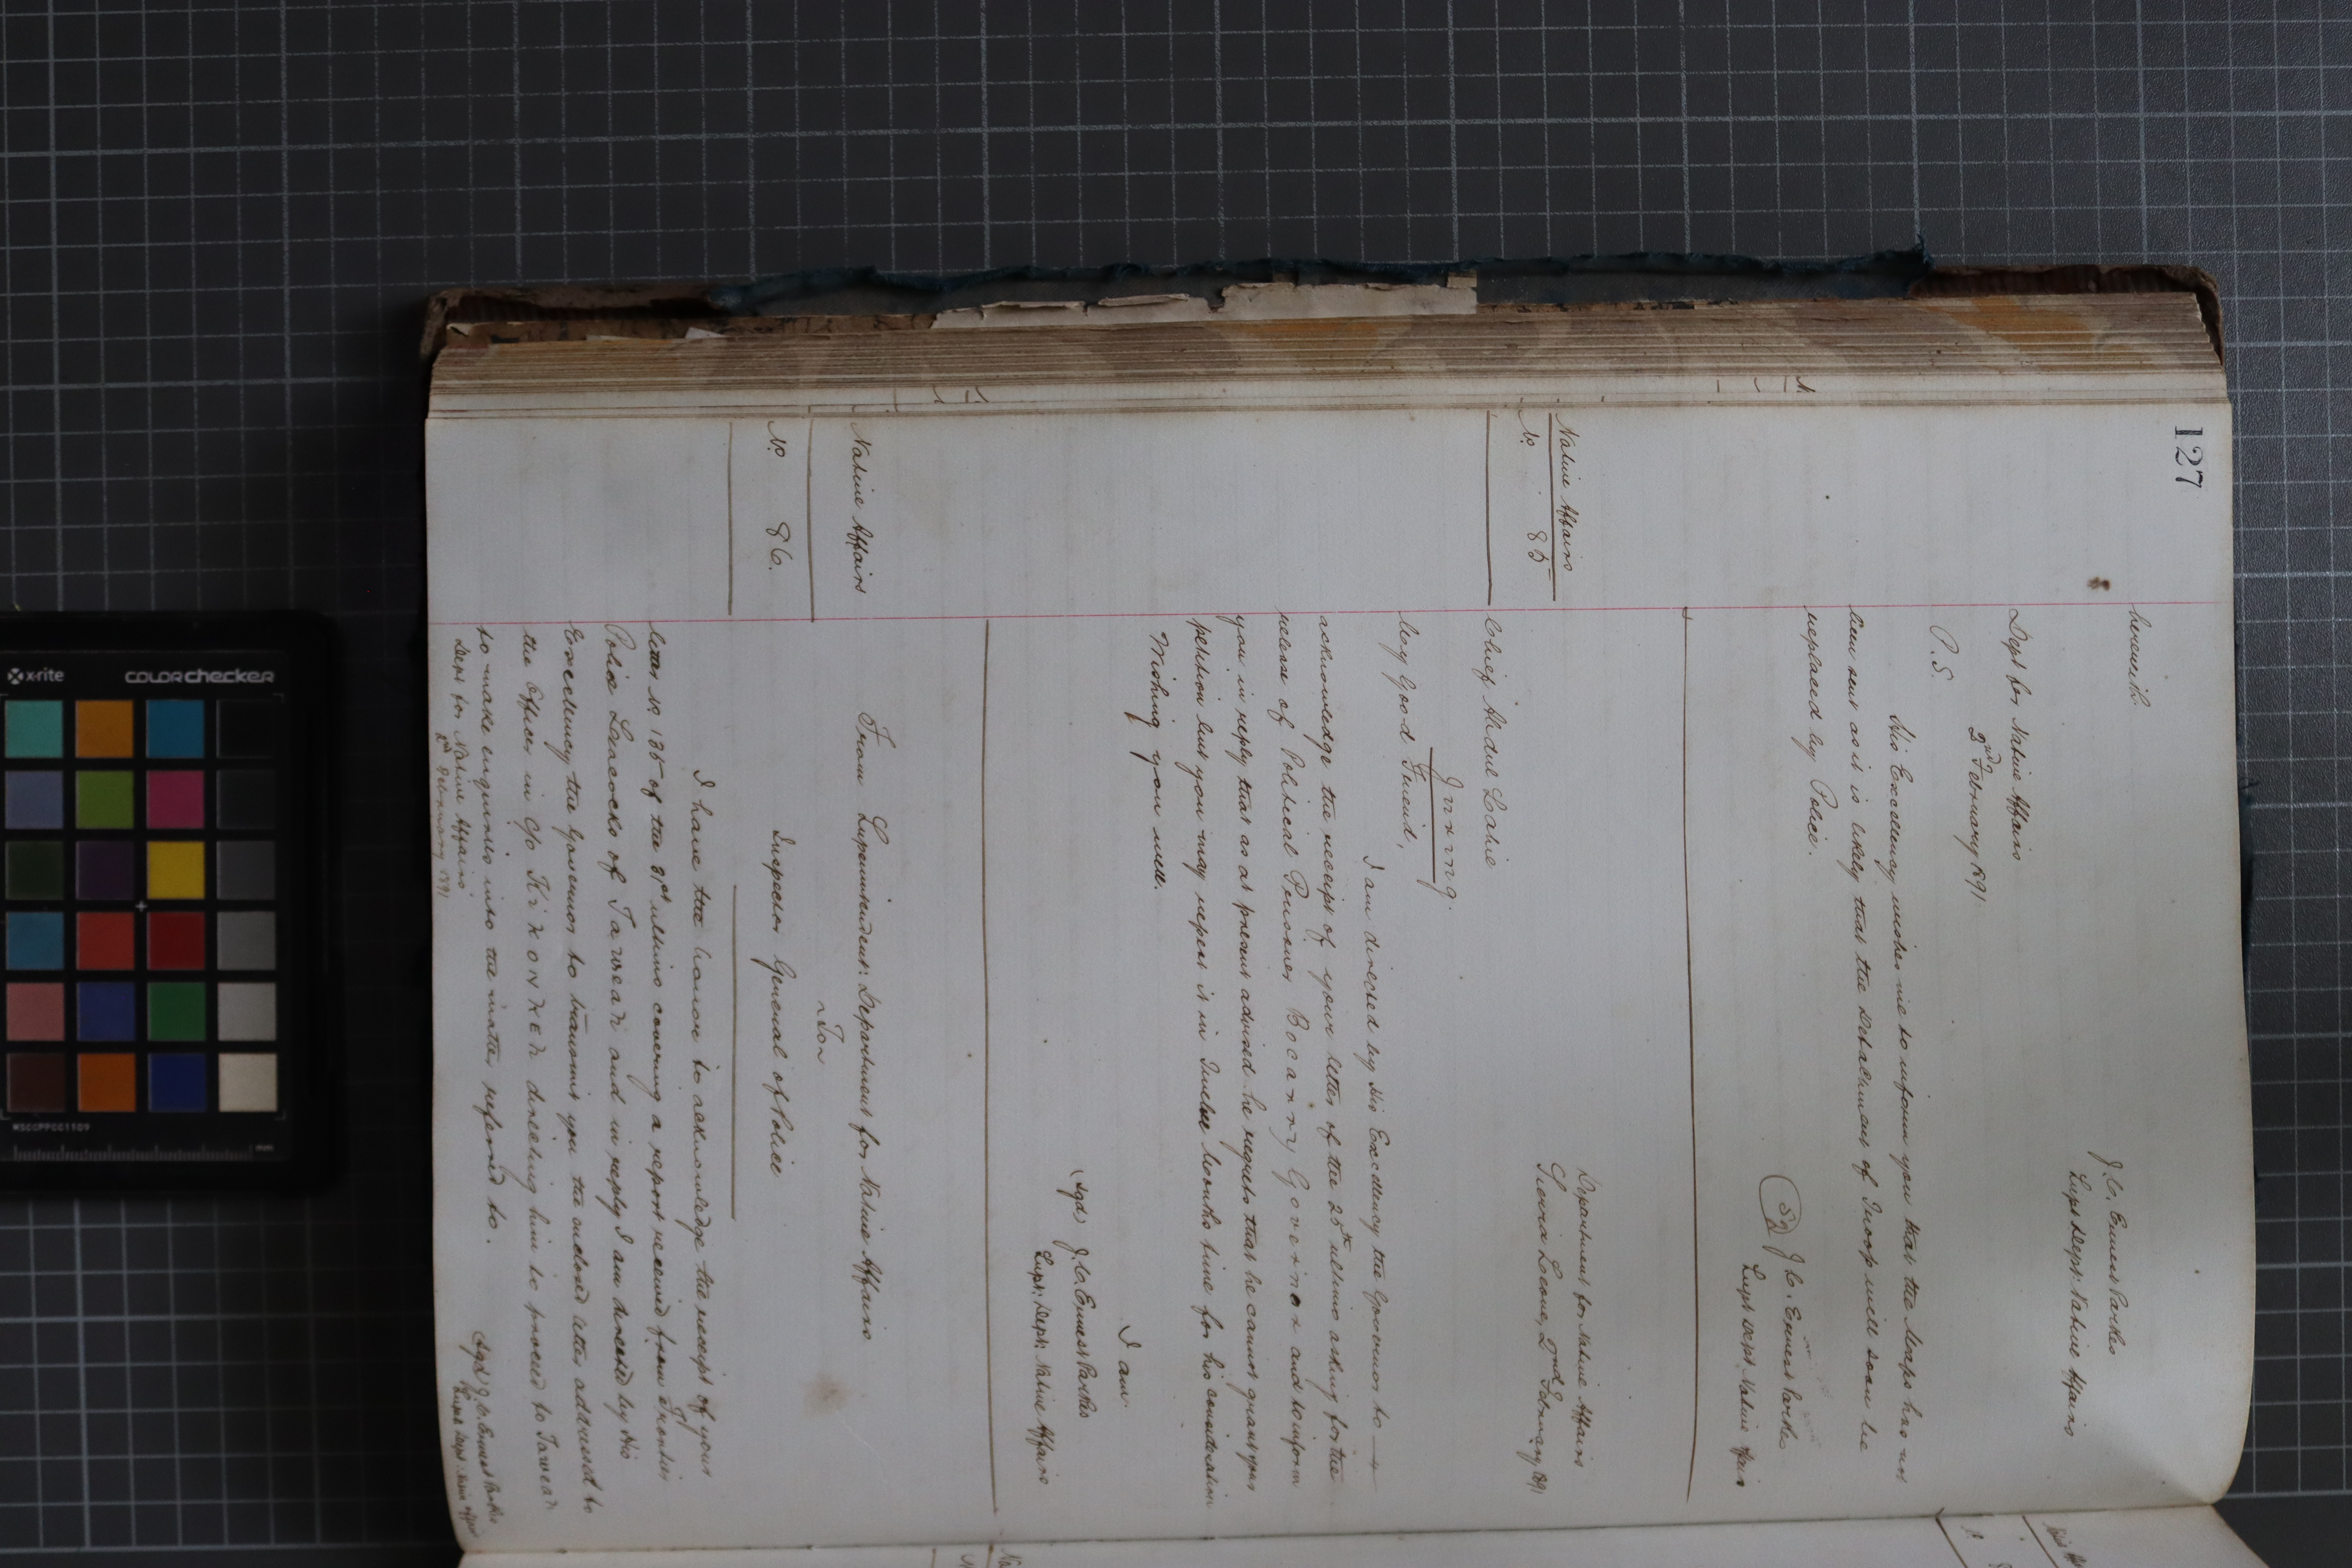 127
herewith.
J. C. Ernest Parkes
Supt Dept: Native Affairs
Dept for Native Affairs
2nd February 1891
P. S.
His Excellency wishes me to inform you that the has not
been sent as it is likely that the Detachment of Troops will soon be
replaced by Police.
Sd J. C. Ernest Parkes
Supt Dept. Native Affairs
Native Affairs
No. 85
Department for Native Affairs
Sierra Leone, 2nd February 1891
Chief Abdul Lahie
My Good Friend,
I am directed by His Excellency the Governor to
acknowledge the receipt of your letter of the 25th ultimo asking for the
release of Political Prisoner Bocarry Governor and to inform
you in reply that as at present advised he regrets that he cannot grant your
petition but you may repeat it in Twelve Months time for his consideration
Wishing you well.
I am.
(sgd) J. C. Ernest Parkes
Supt: Dept: Native Affairs
Native Affairs
No. 86.
From Superintendent: Department for Native Affairs
To
Inspector General of Police
I have the honor to acknowledge the receipt of your
letter No 135 of the 31st ultimo covering a report received from Frontier
Police of Taweah and in reply I am directed by His
Excellency the Governor to transmit you the enclosed letter addressed to
the Officer in c/o Kikonkeh directing him to proceed to Taweah
to make enquiries into the matter referred to.
Dept for Native Affairs
2nd February 1891
Sgd J. C. Ernest Parkes
Supt Dept. Native Affairs
x-rite
colorchecker
MSCCPPCC1109
mm